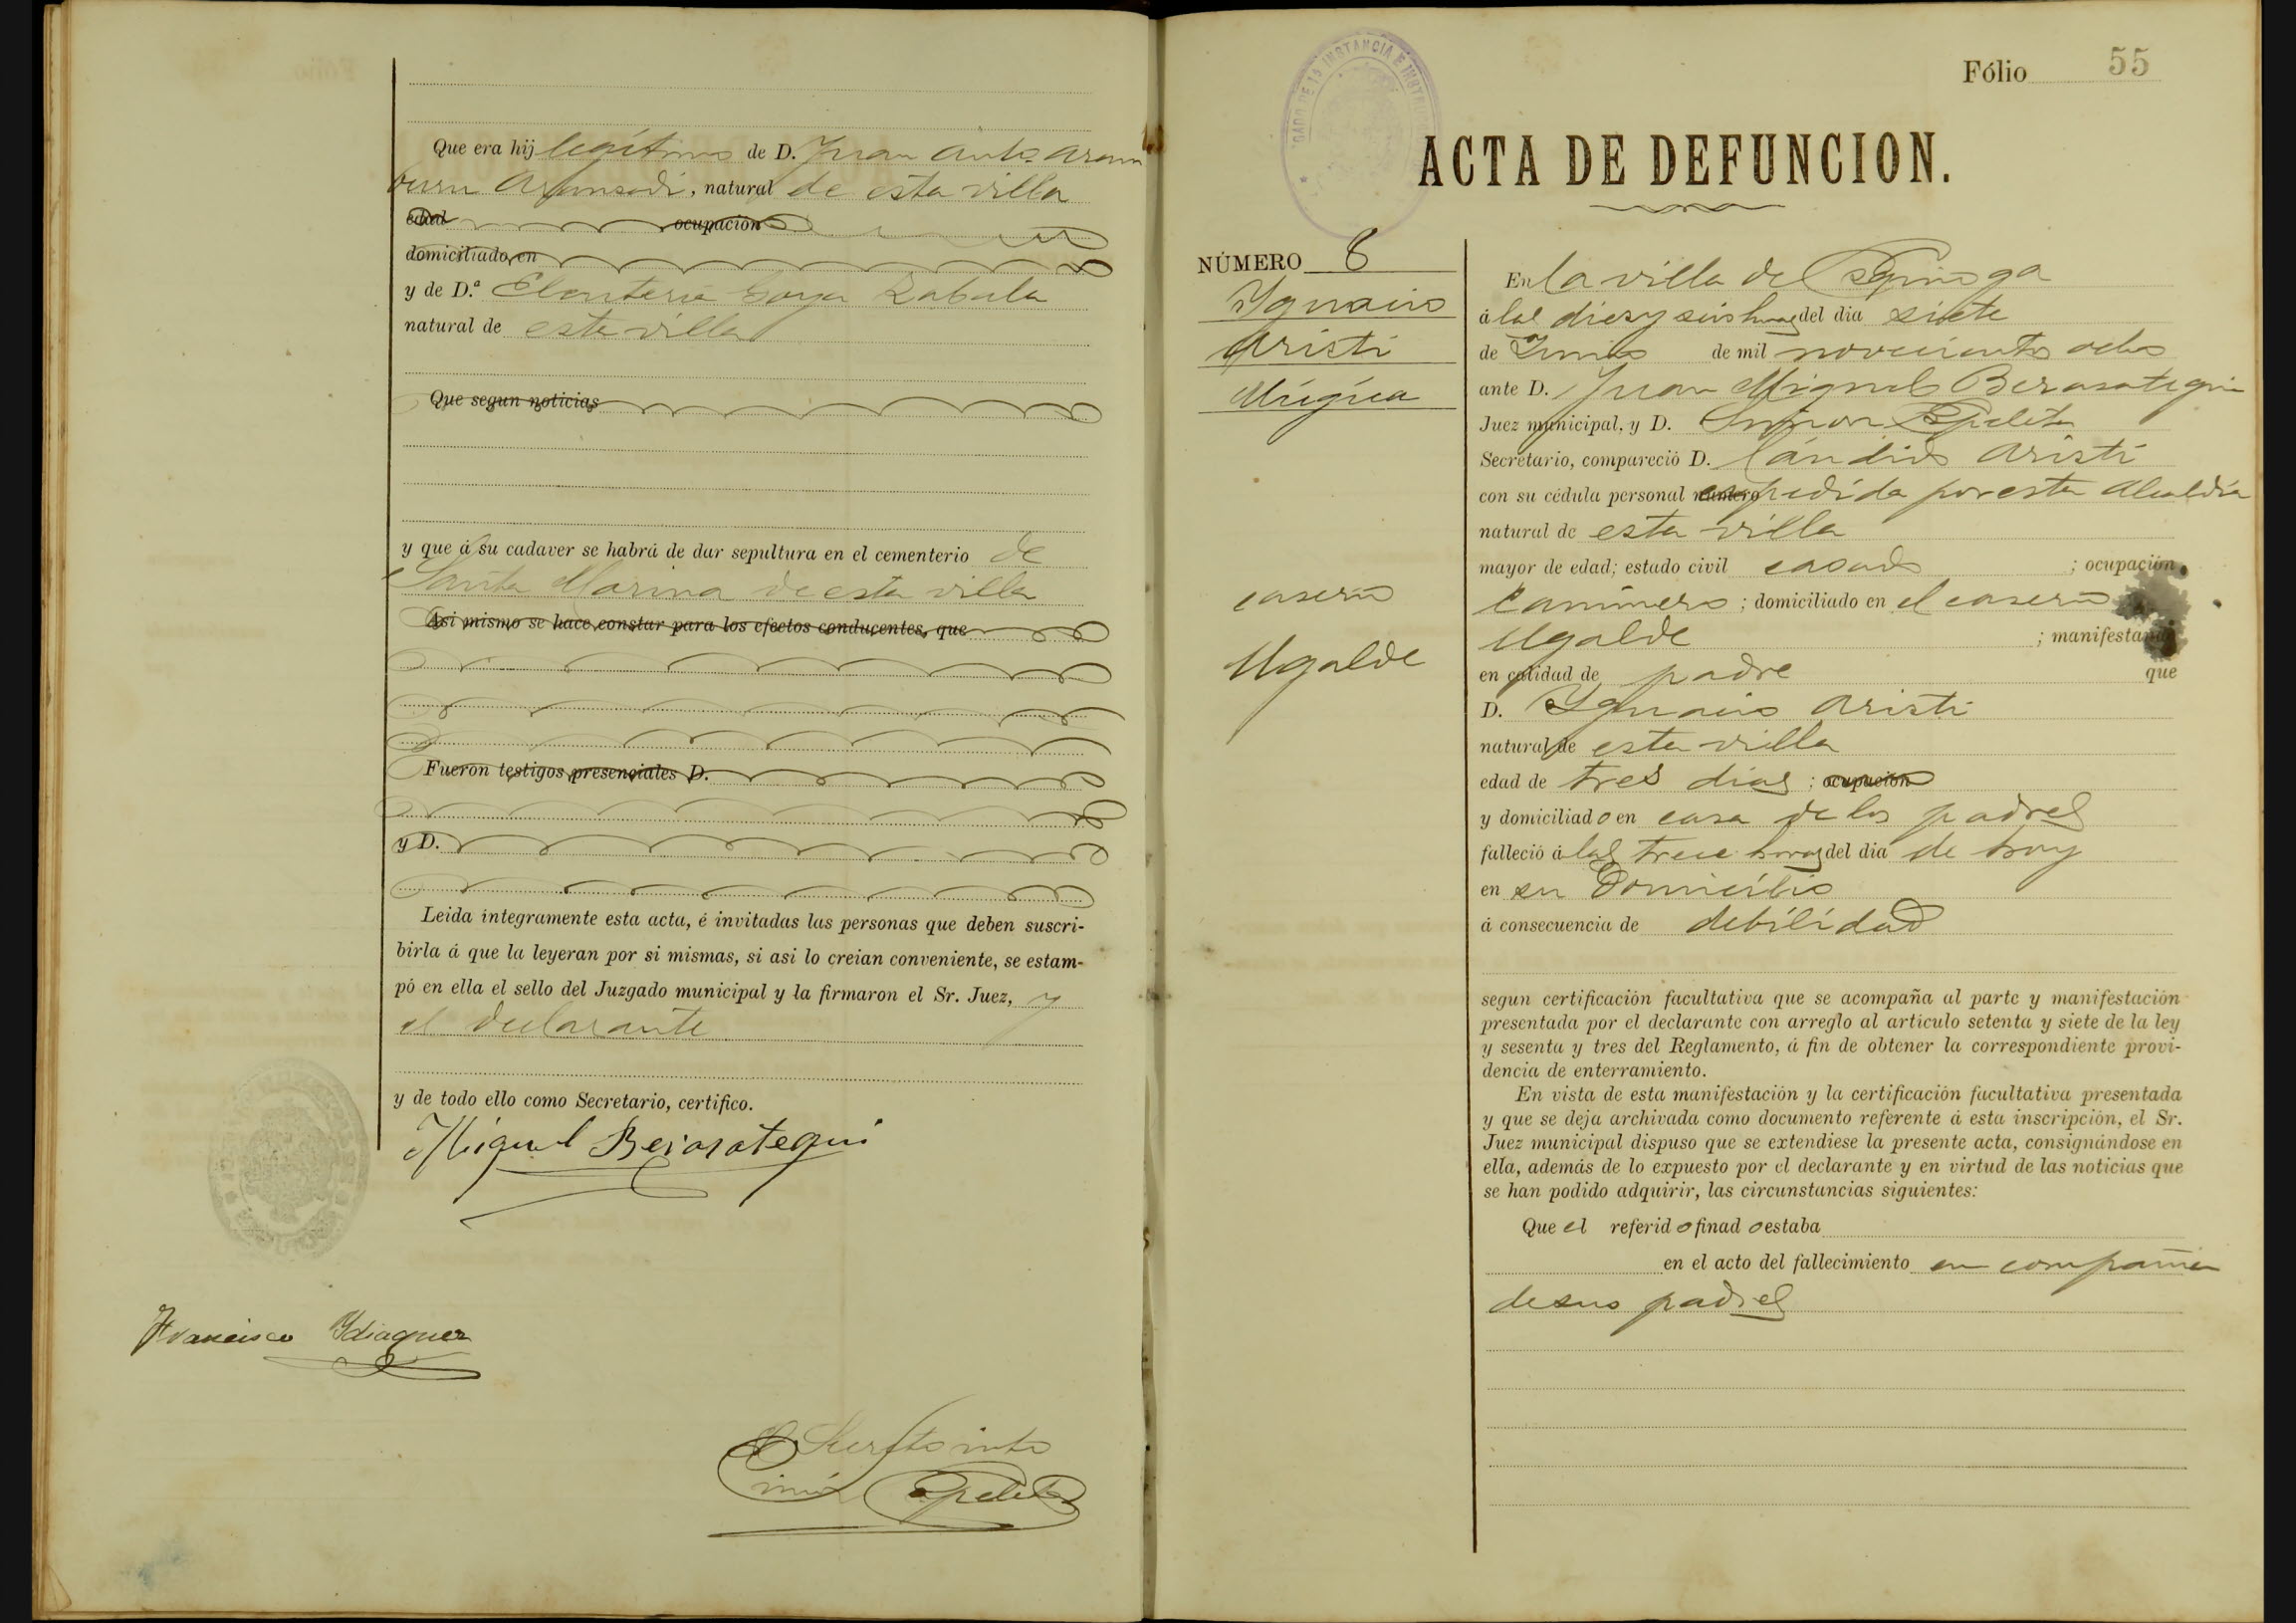 Que era hij legítimo de D. Juan Anto. Aram
buru Aranzadi, natural de esta villa
edad ocupación
domiciliado en
y de D.ª Eleuteria Goya Zabala
natural de esta villa
Que segun noticias
y que á su cadaver se habrá de dar sepultura en el cementerio de
Santa Marina de esta villa
Asi mismo se hace constar para los efectos conducentes, que
Fueron testigos presenciales D.
y D.
Leida íntegramente esta acta, é invitadas las personas que deben suscri-
birla á que la leyeran por si mismas, si asi lo creian conveniente, se estam-
pó en ella el sello del Juzgado municipal y la firmaron el Sr. Juez, y
el declarante
y de todo ello como Secretario, certifico.
Miguel Berasategui
Francisco Ydiaquez
El Secreto into
Simón Ezpeleta
Fólio 55
ACTA DE DEFUNCION.
NÚMERO 8
Ygnacio
Aristi
Múgica
caserio
Ugalde
En la villa de Ezquioga
á las diez y seis horas del dia siete
de Junio de mil novecientos ocho
ante D. Juan Miguel Berasategui
Juez municipal, y D. Simon Ezpeleta
Secretario, compareció D. Cándido Aristi
con su cédula personal número espedida por esta Alcaldia
natural de esta villa
mayor de edad; estado civil casado ; ocupación
Caminero ; domiciliado en el caserio
Ugalde ; manifestando
en calidad de padre que
D. Ygnacio Aristi
natural de esta villa
edad de tres dias ; ocupación
y domiciliado en casa de los padres
falleció á las trece horas del dia de hoy
en su Domicilio
á consecuencia de debilidad
segun certificación facultativa que se acompaña al parte y manifestación
presentada por el declarante con arreglo al artículo setenta y siete de la ley
y sesenta y tres del Reglamento, á fin de obtener la correspondiente provi-
dencia de enterramiento.
En vista de esta manifestación y la certificación facultativa presentada
y que se deja archivada como documento referente á esta inscripción, el Sr.
Juez municipal dispuso que se extendiese la presente acta, consignándose en
ella, además de lo expuesto por el declarante y en virtud de las noticias que
se han podido adquirir, las circunstancias siguientes:
Que el referido finado estaba
en el acto del fallecimiento en compañia
de sus padres